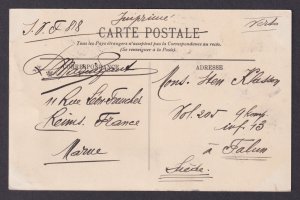 Imprimé
Verte
CARTE POSTALE
Tous les Pays étrangers n'acceptent pas la Correspondance au recto.
(Se renseigner à la Poste).
CORRESPONDANCE
ADRESSE
11 Rue Léon Faucher
Reims. France
Marne
Mons. Sten
Vol. 205 9 komp.
inf. 13
à Falun
Suède